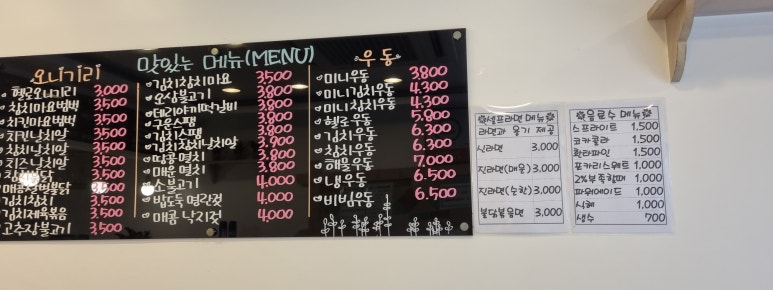 맛있는 메뉴(MENU)
오니기리
헬로오니기리 3,000
참치마요범벅 3,500
치킨마요범벅 3,500
치킨낫치알 3,500
참치낫치알 3,500
치즈낫치알 3,500
3,500
3,500
김치참치 3,500
김치제육볶음 3,500
고추장불고기 3,500
김치참치마요 3,500
오삼불고기 3,800
데리야끼떡갈비 3,800
구운스팸 3,800
김치스팸 3,800
김치참치낫치알 3,900
땅콩멸치 3,800
매운멸치 3,800
소불고기 4,000
밥도둑 명란젓 4,000
매콤 낙지젓 4,000
우동
미니우동 3,800
미니김치우동 4,300
미니참치우동 4,300
헬로우동 5,800
김치우동 6,300
참치우동 6,300
해물우동 7,000
냉우동 6,500
비빔우동 6,500
셀프라면 메뉴
라면과 용기 제공
신라면 3,000
진라면(매운) 3,000
진라면(순한) 3,000
불닭볶음면 3,000
음료수 메뉴
스프라이트 1,500
코카콜라 1,500
환타파인 1,500
포카리스웨트 1,000
2%부족할때 1,000
파워에이드 1,000
식혜 1,000
생수 700